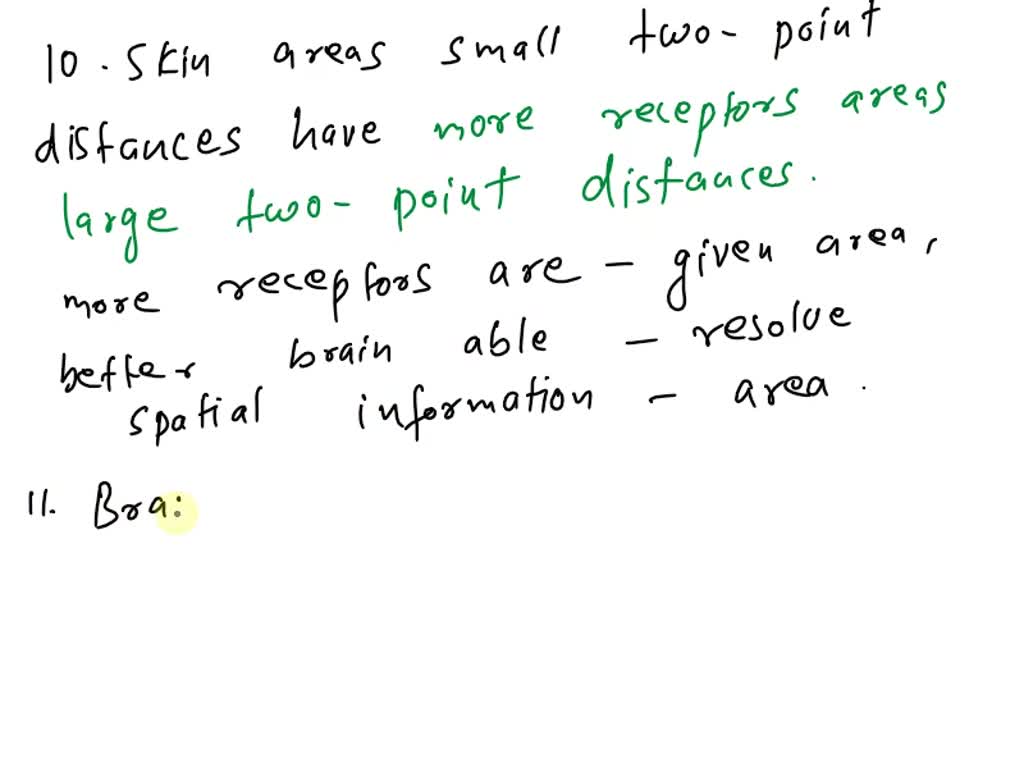 10. Skin areas small two-point
distances have more receptors areas
large two-point distances.
more receptors are - given area,
better brain able - resolve
spatial information - area.
11. Bra: